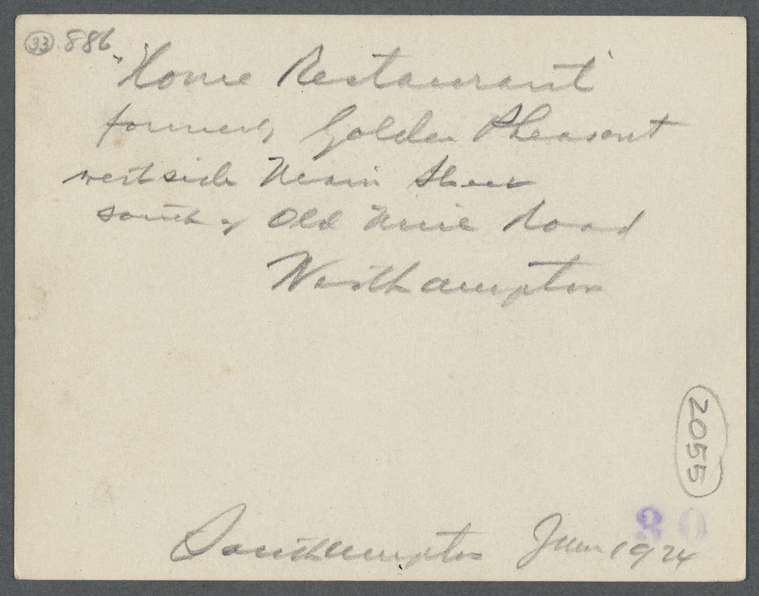 33 886
"Home Restaurant"
formerly Golden Pheasant
west side Main Street
south of Old Mill Road
Westhampton
2055
30
Southampton June 1924